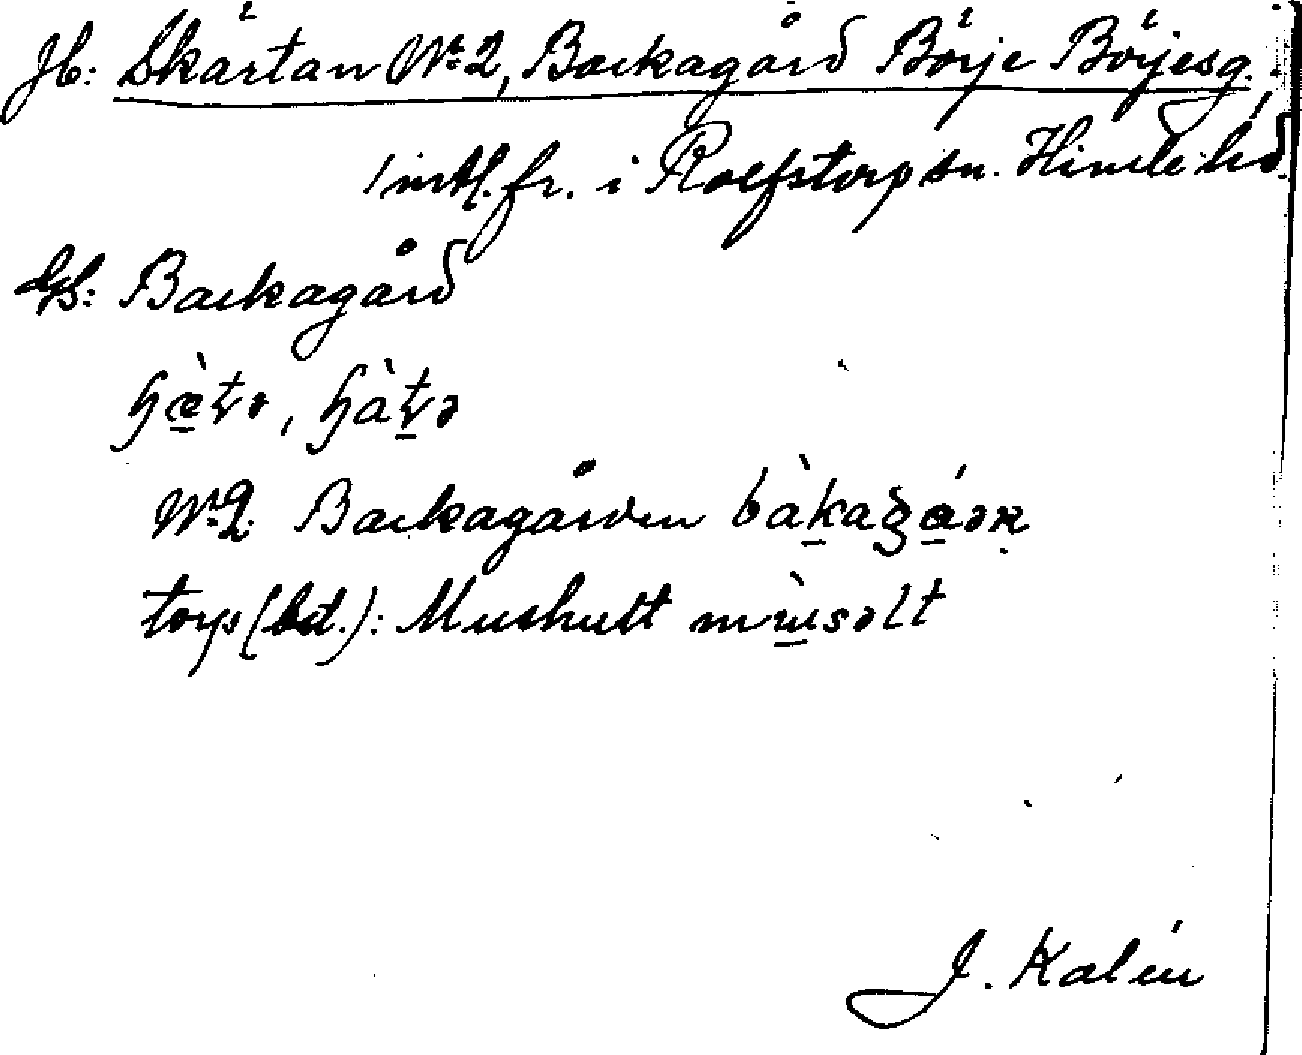 Jb: Skärtan Nr 2, Backagård Börje Börjesg.
1 mtl. fr. i Rolfstorp sn. Himle hd.
Gs: Backagård
Nr 2. Backagården bàkagá̱ən
torp (bd.): Mushult mùsəlt
J. Kalén